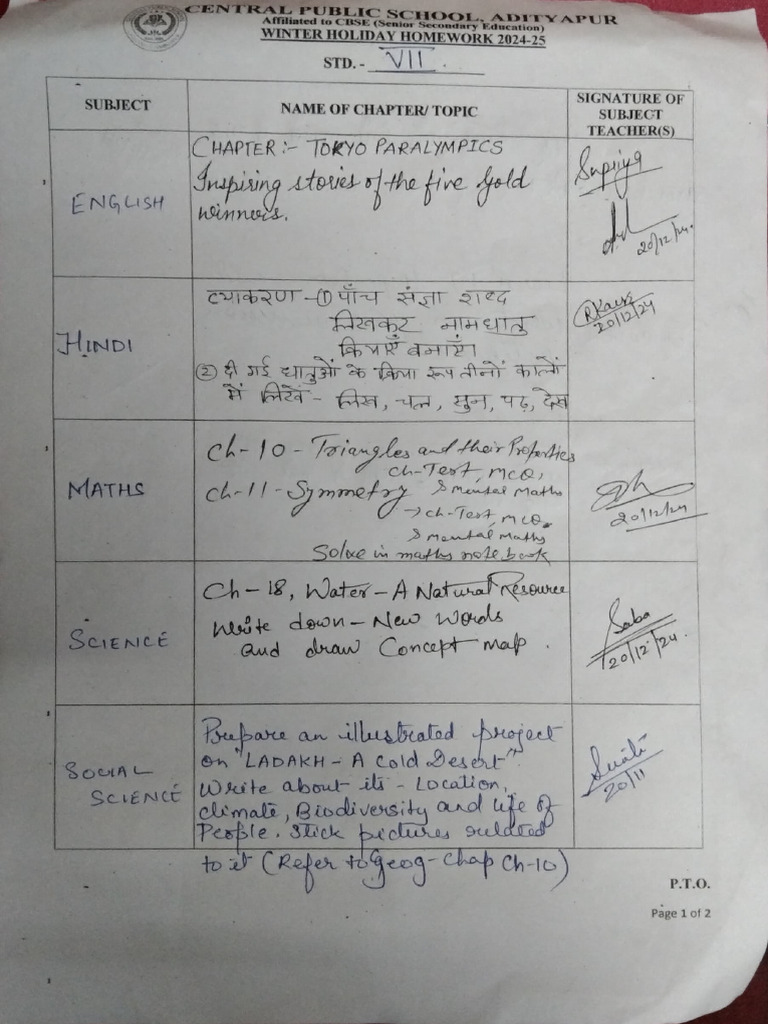 CENTRAL PUBLIC SCHOOL, ADITYAPUR
Affiliated to CBSE (Senior Secondary Education)
WINTER HOLIDAY HOMEWORK 2024-25
STD. - VII
SUBJECT
NAME OF CHAPTER/ TOPIC
SIGNATURE OF
SUBJECT
TEACHER(S)
ENGLISH
CHAPTER:- TOKYO PARALYMPICS
Inspiring stories of the five Gold
winners.
Supriya
20/12/24.
HINDI
व्याकरण - ① पाँच संज्ञा शब्द
लिखकर नामधातु
क्रियाएँ बनाएँ।
② दी गई धातुओं के क्रिया रूप तीनों कालों
में लिखें - लिख, चल, सुन, पढ़, देख
RKaur
20/12/24
MATHS
Ch-10 - Triangles and their Properties
Ch-Test, MCQ,
& mental Maths
Ch-11 - Symmetry
→ Ch-Test, MCQ.
& mental Maths
Solve in maths note book
20/12/24
SCIENCE
Ch-18, Water - A Natural Resource
Write down - New Words
and draw Concept map.
Saba
20/12/24.
SOCIAL
SCIENCE
Prepare an illustrated project
on "LADAKH - A Cold Desert".
Write about its - Location,
climate, Biodiversity and life of
People. Stick pictures related
to it (Refer to Geog-Chap Ch-10)
Swati
20/11
P.T.O.
Page 1 of 2